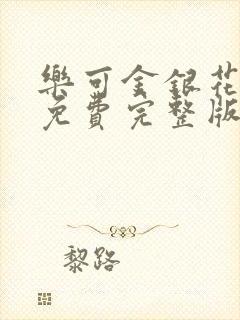 樂可金銀花
免費完整版
黎路